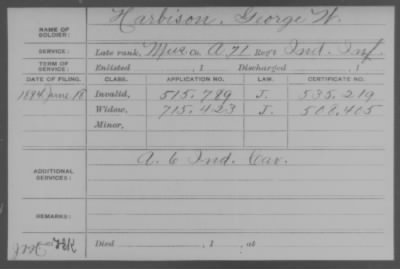 NAME OF SOLDIER: Harbison, George W.
SERVICE: Late rank, Mus Co. A, 71 Reg't Ind. Inf.
TERM OF SERVICE: Enlisted , 1 Discharged , 1
DATE OF FILING. CLASS. APPLICATION NO. LAW. CERTIFICATE NO.
1884 June 18 Invalid, 515.789 J. 535.219
Widow, 715.423 J. 508.405
Minor,
ADDITIONAL SERVICES: A. 6 Ind. Cav.
REMARKS:
Died , 1 , at